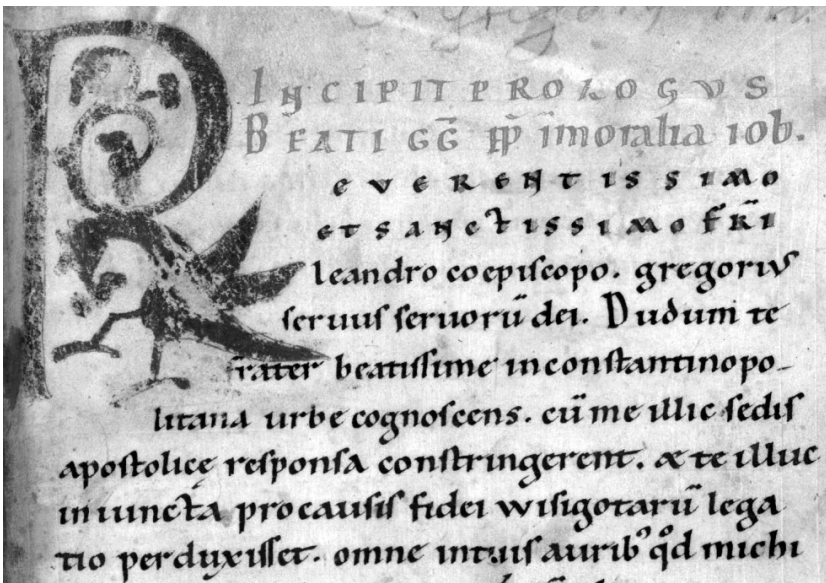 INCIPIT PROLOGVS
BEATI GḠ PP̄ in moralia iob.
REVERENTISSIMO
ET SANCTISSIMO FR̄I
leandro coepiſcopo. gregoriuſ
ſeruuſ ſeruorū dei. Dudum te
frater beatiſſime in conſtantinopo-
litana urbe cognoſcens. cū me illic ſediſ
apoſtolicę reſponſa conſtringerent. & te illuc
iniuncta pro cauſiſ fidei wiſigotarū lega
tio perduxiſſet. omne in tuiſ auribꝰ qd̄ michi